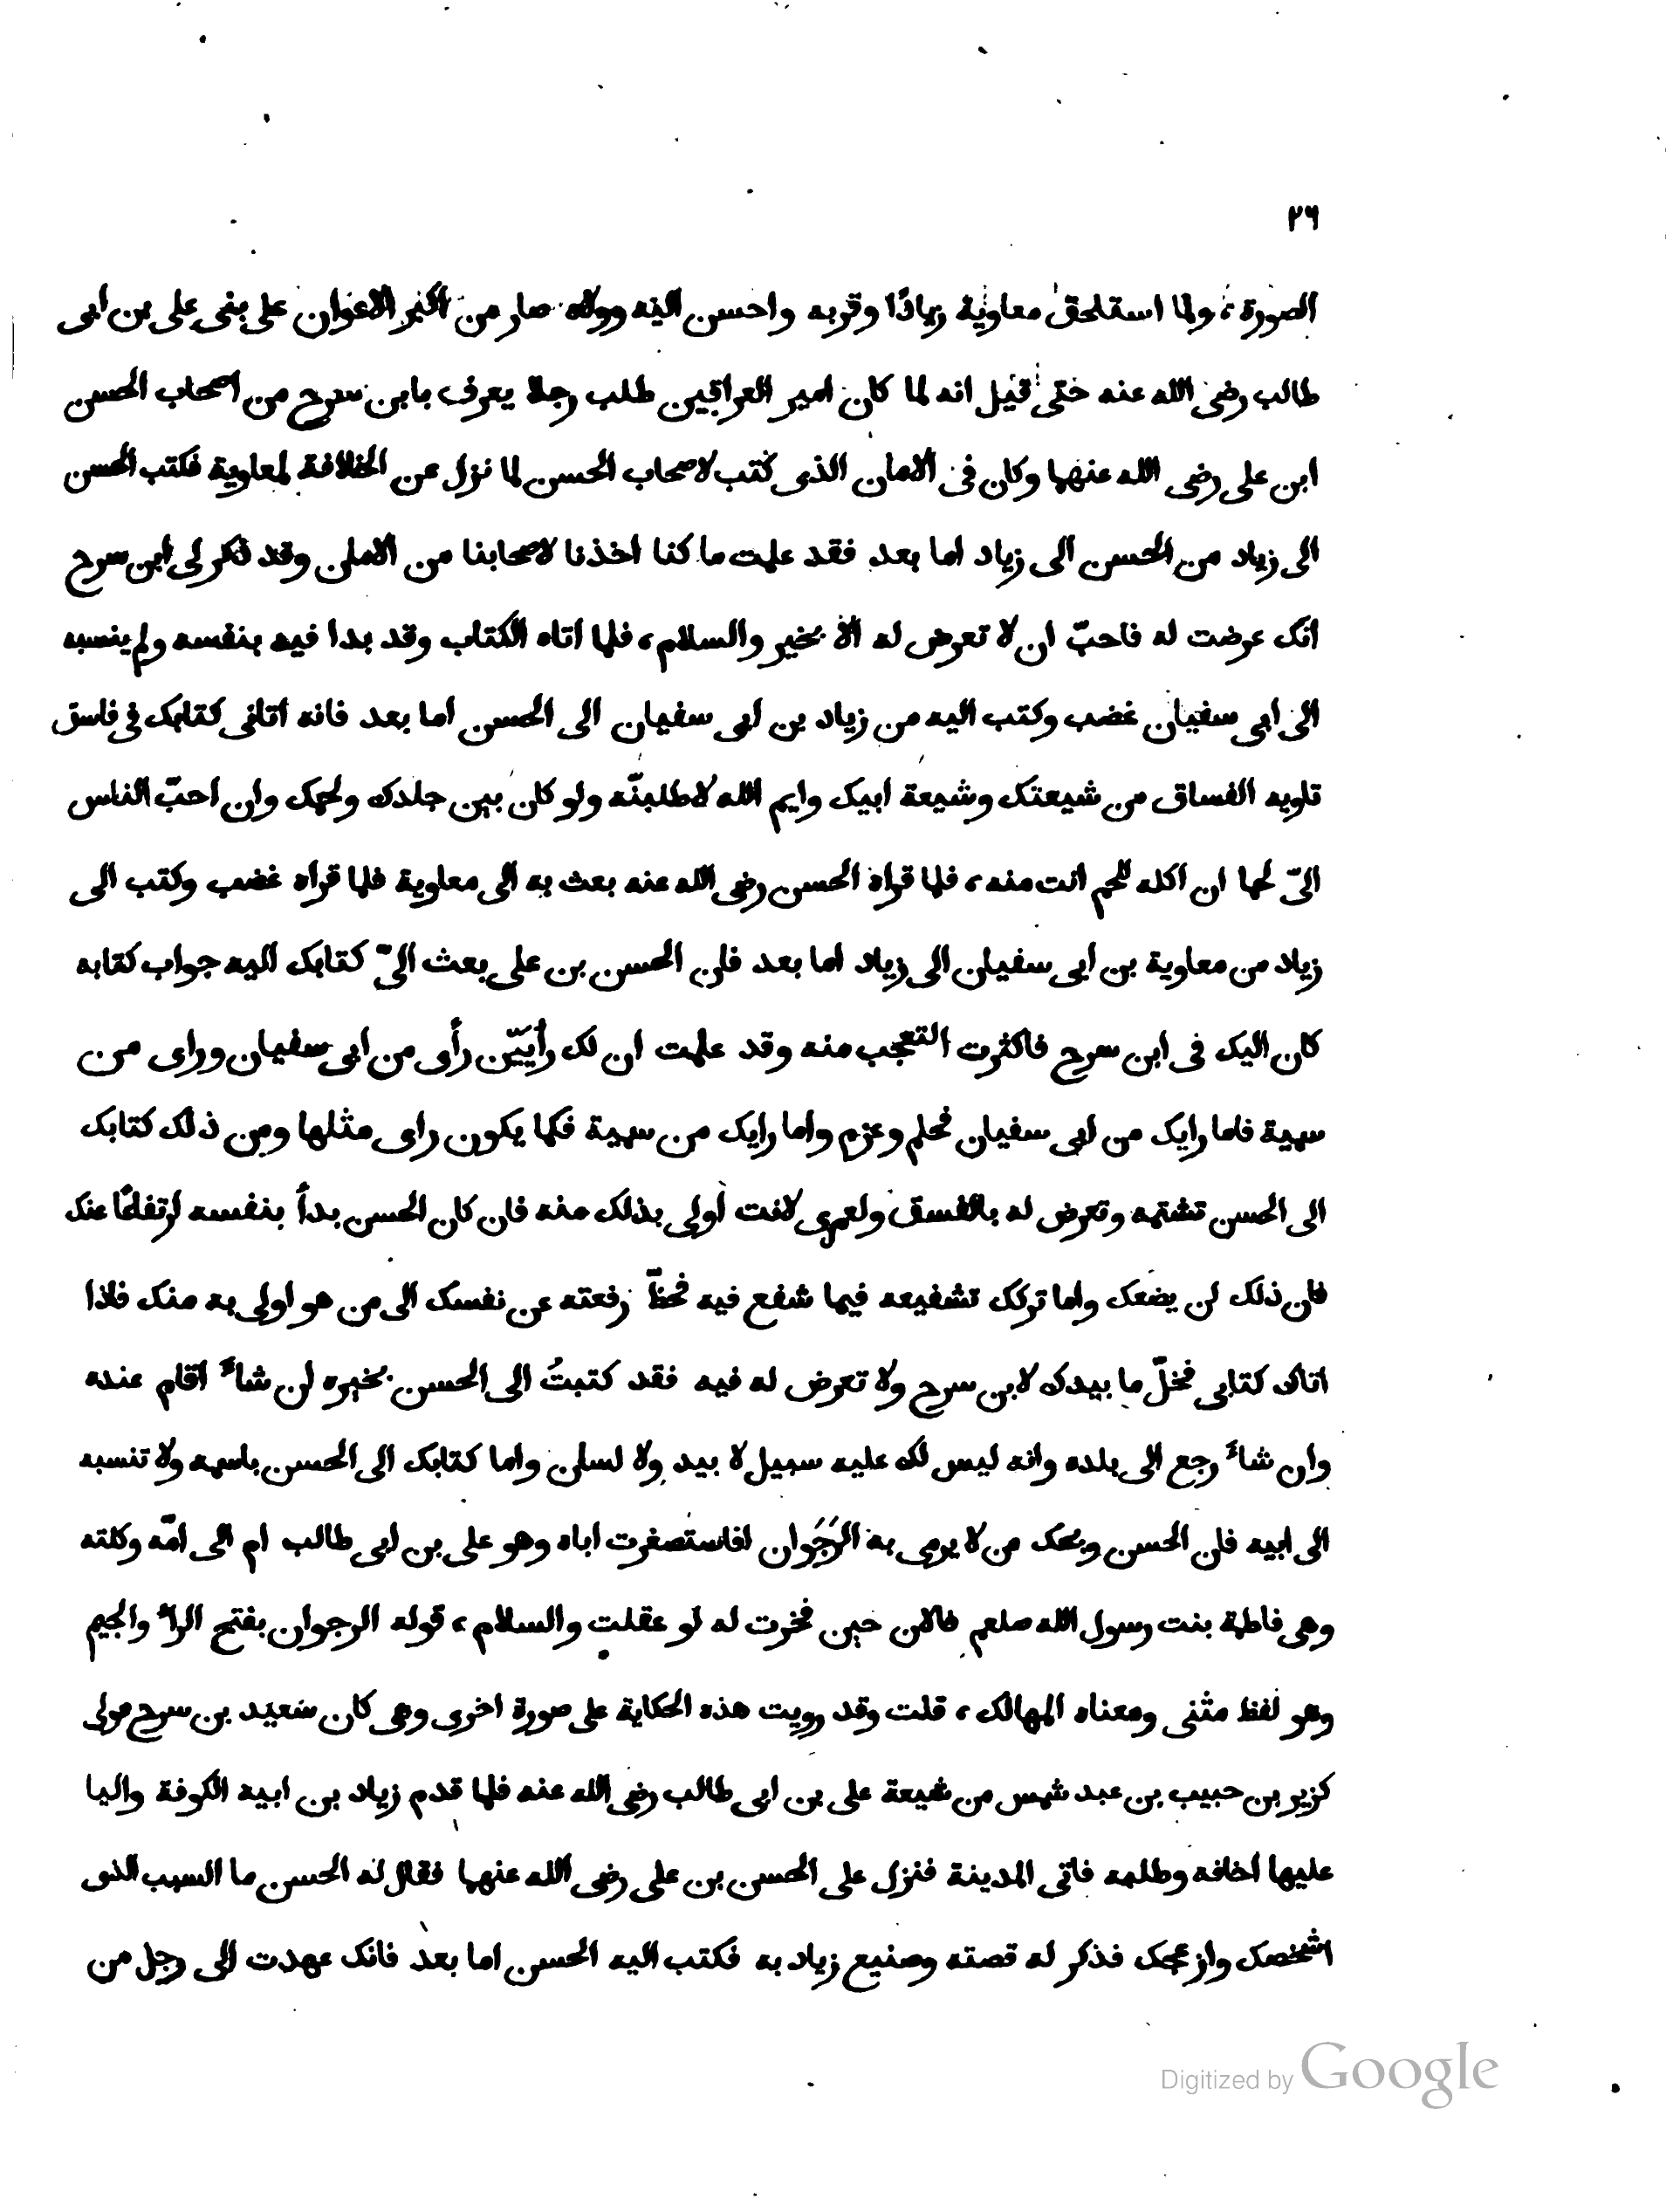 ٢٦
الصورة، ولما استلحق معاوية زيادًا وقربه واحسن اليه وولاه صار من اكبر الاعوان على بنى على بن ابى
طالب رضى الله عنه حتى قيل انه لما كان امير العراقين طلب رجلا يعرف بابن سرح من اصحاب الحسن
ابن على رضى الله عنهما وكان فى الامان الذى كتب لاصحاب الحسن لما نزل عن الخلافة لمعاوية فكتب الحسن
الى زياد من الحسن الى زياد اما بعد فقد علمت ما كنا اخذنا لاصحابنا من الامان وقد ذكر لى ابن سرح
انك عرضت له فاحبّ ان لا تعرض له الا بخير والسلام، فلما اتاه الكتاب وقد بدا فيه بنفسه ولم ينسبه
الى ابى سفيان غضب وكتب اليه من زياد بن ابى سفيان الى الحسن اما بعد فانه اتانى كتابك فى فاسق
تاويه الفساق من شيعتك وشيعة ابيك وايم الله لاطلبنّه ولو كان بين جلدك ولحمك وان احبّ الناس
الىّ لحما ان اكله للحم انت منه، فلما قراه الحسن رضى الله عنه بعث به الى معاوية فلما قراه غضب وكتب الى
زياد من معاوية بن ابى سفيان الى زياد اما بعد فان الحسن بن على بعث الىّ كتابك اليه جواب كتابه
كان اليك فى ابن سرح فاكثرت التعجب منه وقد علمت ان لك رأيَيْن رأى من ابى سفيان وراى من
سمية فاما رايك من ابى سفيان فحلم وعزم واما رايك من سمية فكما يكون راى مثلها ومن ذلك كتابك
الى الحسن تشتمه وتعرض له بالفسق ولعمرى لانت اولى بذلك منه فان كان الحسن بدأ بنفسه ارتفاعًا عنك
فان ذلك لن يضعك واما تركك تشفيعه فيما شفع فيه فحظّ رفعته عن نفسك الى من هو اولى به منك فاذا
اتاك كتابى فخلّ ما بيدك لابن سرح ولا تعرض له فيه فقد كتبتُ الى الحسن بخيره ان شاء اقام عنده
وان شاء رجع الى بلده وانه ليس لك عليه سبيل لا بيد ولا لسان واما كتابك الى الحسن باسمه ولا تنسبه
الى ابيه فان الحسن ويحك من لا يرمى به الرَجَوان افاستصغرت اباه وهو على بن ابى طالب ام الى امّه وكلته
وهى فاطمة بنت رسول الله صلعم فالان حين فخرت له لو عقلت والسلام، قوله الرجوان بفتح الراء والجيم
وهو لفظ مثنى ومعناه المهالك، قلت وقد رويت هذه الحكاية على صورة اخرى وهى كان سعيد بن سرح مولى
كزير بن حبيب بن عبد شمس من شيعة على بن ابى طالب رضى الله عنه فلما قدم زياد بن ابيه الكوفة واليا
عليها اخافه وطلبه فاتى المدينة فنزل على الحسن بن على رضى الله عنهما فقال له الحسن ما السبب الذى
اشخصك وازعجك فذكر له قصته وصنيع زياد به فكتب اليه الحسن اما بعد فانك عهدت الى رجل من
Digitized by Google